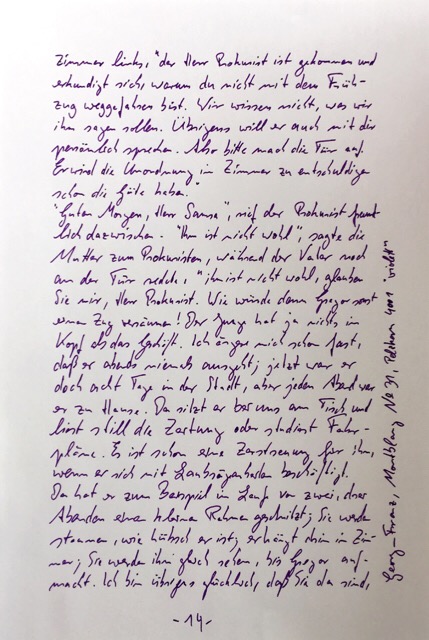 Zimmer links, "der Herr Prokurist ist gekommen und
erkundigt sich, warum du nicht mit dem Früh-
zug weggefahren bist. Wir wissen nicht, was wir
ihm sagen sollen. Übrigens will er auch mit dir
persönlich sprechen. Also bitte mach die Tür auf.
Er wird die Unordnung im Zimmer zu entschuldigen
schon die Güte haben."
"Guten Morgen, Herr Samsa", rief der Prokurist freund
lich dazwischen. "Ihm ist nicht wohl", sagte die
Mutter zum Prokuristen, während der Vater noch
an der Tür redete, "ihm ist nicht wohl, glauben
Sie mir, Herr Prokurist. Wie würde denn Gregor sonst
einen Zug versäumen! Der Junge hat ja nichts im
Kopf als das Geschäft. Ich ärgere mich schon fast,
daß er abends niemals ausgeht; jetzt war er
doch acht Tage in der Stadt, aber jeden Abend war
er zu Hause. Da sitzt er bei uns am Tisch und
liest still die Zeitung oder studiert Fahr-
pläne. Es ist schon eine Zerstreuung für ihn,
wenn er sich mit Laubsägearbeiten beschäftigt.
Da hat er zum Beispiel im Laufe von zwei, drei
Abenden einen kleinen Rahmen geschnitzt; Sie werden
staunen, wie hübsch er ist; er hängt drin im Zim-
mer; Sie werden ihn gleich sehen, bis Gregor auf-
macht. Ich bin übrigens glücklich, daß Sie da sind,
-14-
Georg-Franz, Montblanc No 31, Pelikan 4001 "violett"